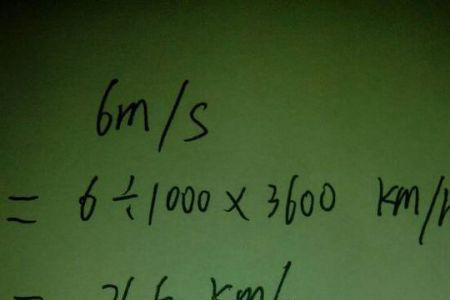 6m/s
= 6÷1000×3600 km/h
= km/